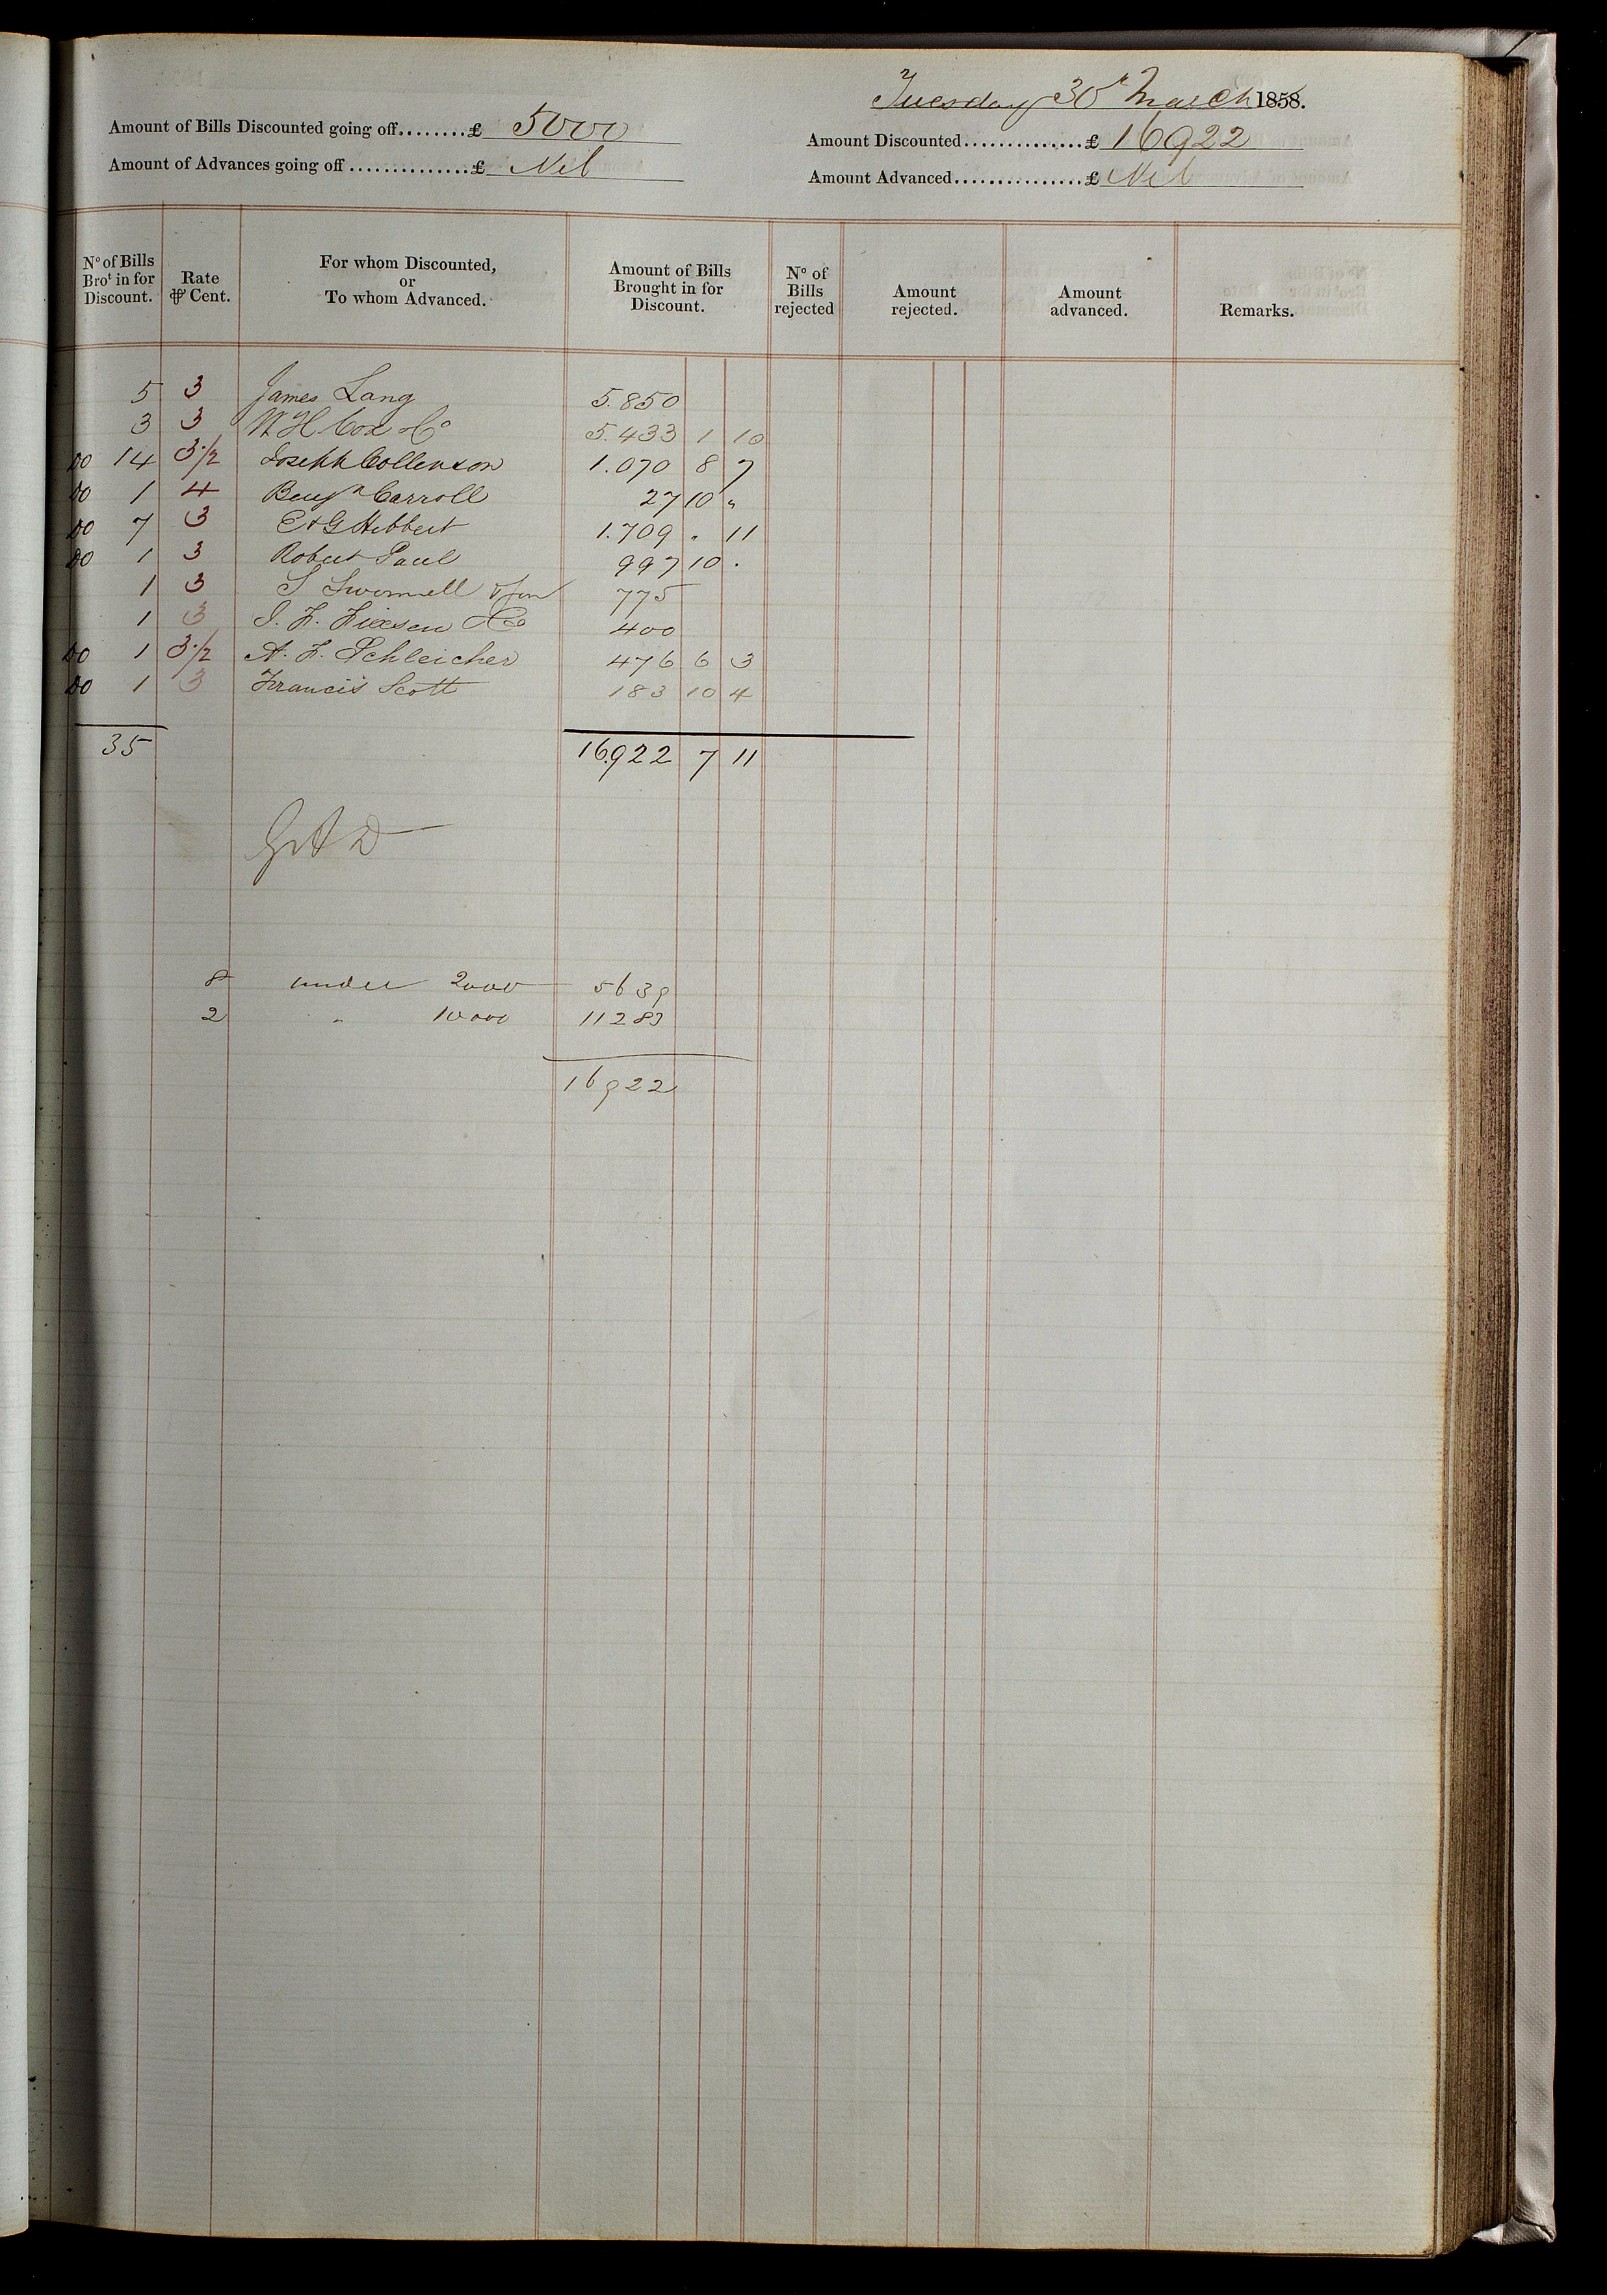 Tuesday 30 March 1858.
Amount of Bills Discounted going off........£ 5000
Amount Discounted...............£ 16922
Amount of Advances going off...............£ Nil
Amount Advanced................£ Nil
No of Bills Brot in for Discount.
Rate ⅌ Cent.
For whom Discounted, or To whom Advanced.
Amount of Bills Brought in for Discount.
No of Bills rejected
Amount rejected.
Amount advanced.
Remarks.
5 3 James Lang 5.850
3 3 W H Cox & Co 5.433 1 10
Do 14 3 1/2 Joseph Collenson 1.070 8 7
Do 1 4 Benjn Carroll 27 10 "
Do 7 3 E & G Hibbert 1.709 " 11
Do 1 3 Robert Paul 997 10 .
1 3 S Swonnell & Son 775
1 3 I. F. Fixsen & Co 400
Do 1 3 1/2 A. F. Schleicher 476 6 3
Do 1 3 Francis Scott 183 10 4
35 16.922 7 11
8 under 2000 5639
2 " 10000 11283
16922